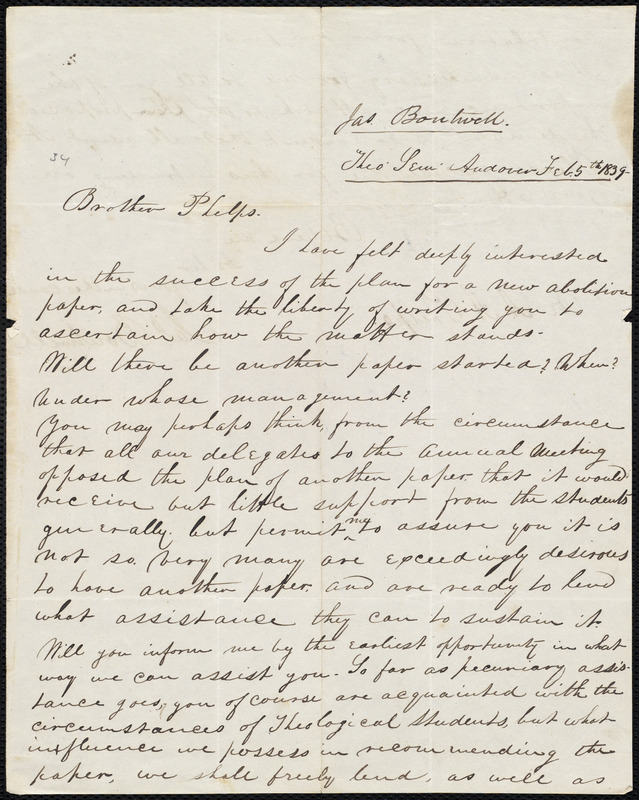 Jas. Boutwell.
Theo. Sem. Andover Feb. 5th 1839
34
Brother Phelps.
I have felt deeply interested
in the success of the plan for a new abolition
paper, and take the liberty of writing you to
ascertain how the matter stands.
Will there be another paper started? When?
Under whose management?
You may perhaps think, from the circumstance
that all our delegates to the Annual Meeting
opposed the plan of another paper that it would
receive but little support from the students
generally. but permit me to assure you it is
not so. Very many are exceedingly desirous
to have another paper, and are ready to lend
what assistance they can to sustain it.
Will you inform me by the earliest opportunity in what
way we can assist you. So far as pecuniary assis-
tance goes, you of course are acquainted with the
circumstances of Theological Students, but what
influence we possess in recommending the
paper, we shall freely lend, as well as